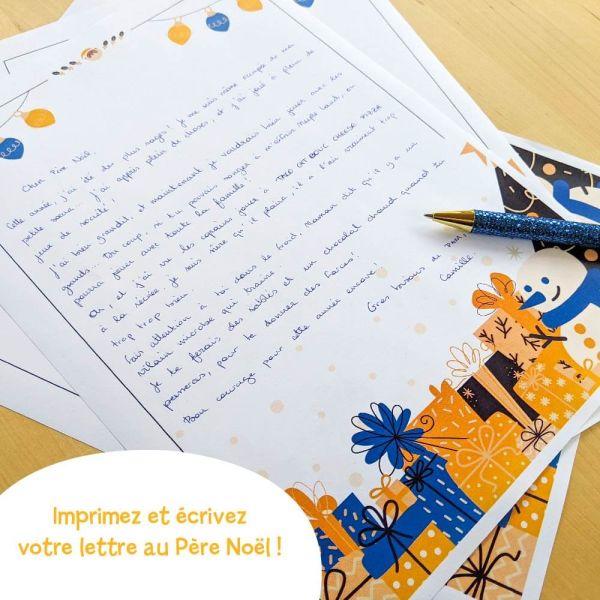 Cher Père Noël,
Cette année, j'ai été des plus sages ! Je me suis même occupée de ma
petite soeur... J'ai appris plein de choses, et j'ai joué à plein de
jeux de société !
J'ai bien grandi, et maintenant je voudrais bien jouer avec les
grands. Du coup, si tu pouvais songer à m'offrir Maple Land, on
pourra jouer avec toute la famille !
Oh, et j'ai vu les copains jouer à TACO CAT BOUC CHEESE PIZZA
à la récrée je suis sûre qu'il plaira, il a l'air vraiment trop
trop trop bien !
Fais attention à toi dans le froid, Maman dit qu'il y a un
vilain microbe qui traîne.
Je te ferais des sablés et un chocolat chaud quand tu
passeras, pour te donner des forces !
Bon courage pour cette année encore !
Gros bisous de
Camille
Imprimez et écrivez
votre lettre au Père Noël !